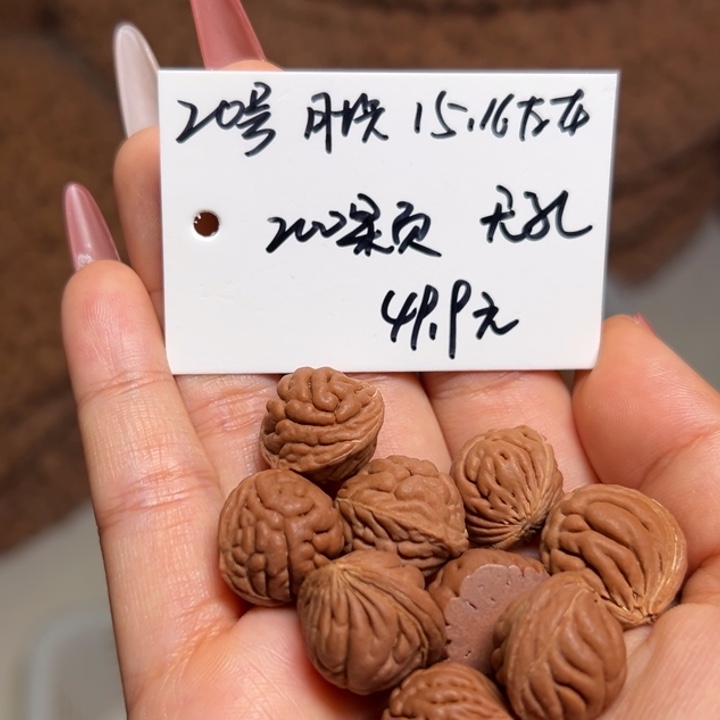 20号 月快 15.16左右
200颗页 无孔
49.9元